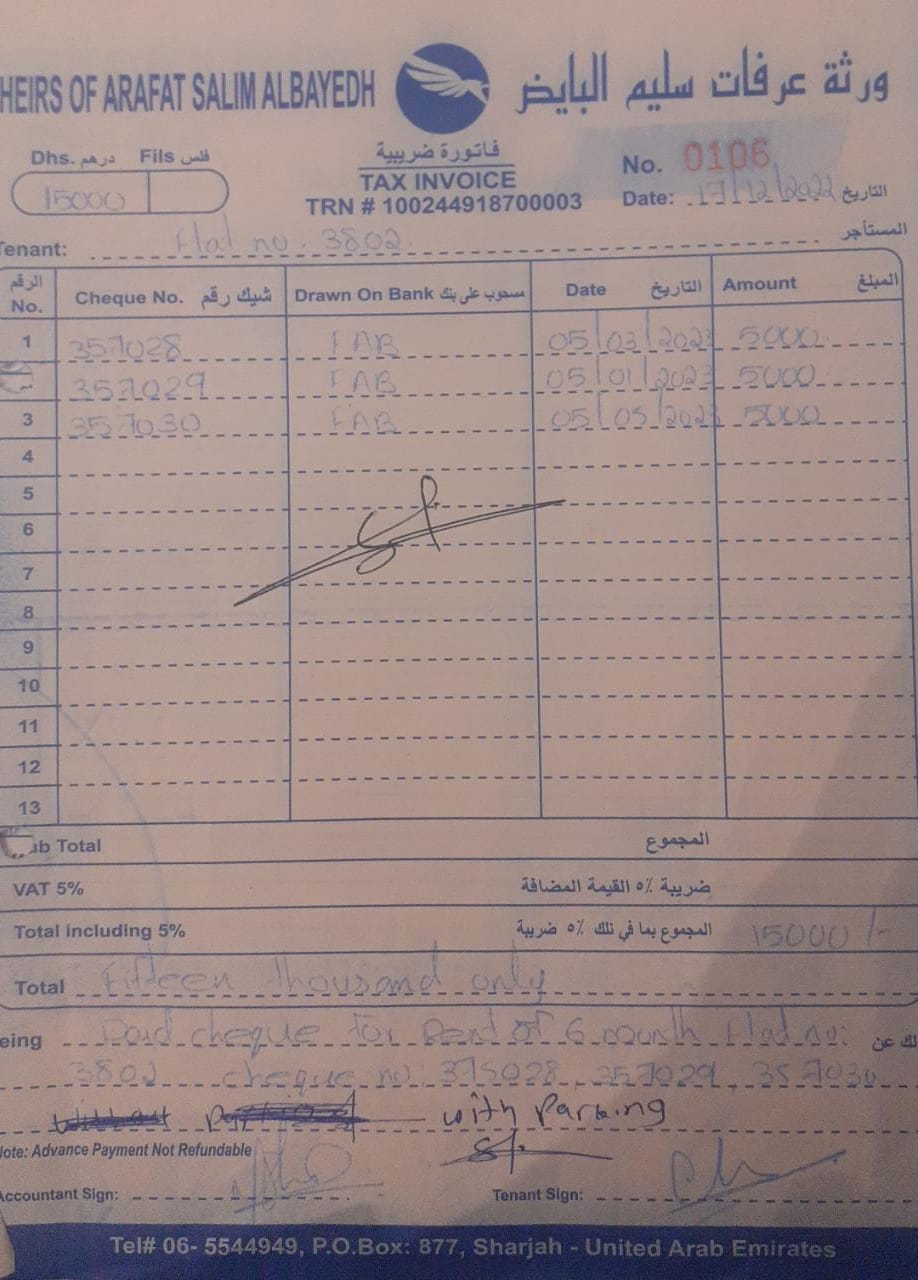 HEIRS OF ARAFAT SALIM ALBAYEDH ورثة عرفات سليم البايض
Dhs. درهم Fils فلس
15000
فاتورة ضريبية
TAX INVOICE
TRN # 100244918700003
No. 0106
Date: 17/12/2022 التاريخ
Tenant: Flat no. 3802. المستأجر
الرقم No. Cheque No. شيك رقم Drawn On Bank مسحوب على بنك Date التاريخ Amount المبلغ
1 357028 FAB 05/03/2023 5000
357029 FAB 05/01/2023 5000
3 357030 FAB 05/05/2023 5000
4
5
6
7
8
9
10
11
12
13
ub Total المجموع
VAT 5% ضريبة ٥٪ القيمة المضافة
Total including 5% المجموع بما في ذلك ٥٪ ضريبة 15000/-
Total Fifteen thousand only
eing Paid cheque for Rent of 6 month Flat no: لك عن
3802 cheque no: 375028, 357029, 357030
with Parking
Note: Advance Payment Not Refundable
Accountant Sign: Tenant Sign:
Tel# 06- 5544949, P.O.Box: 877, Sharjah - United Arab Emirates